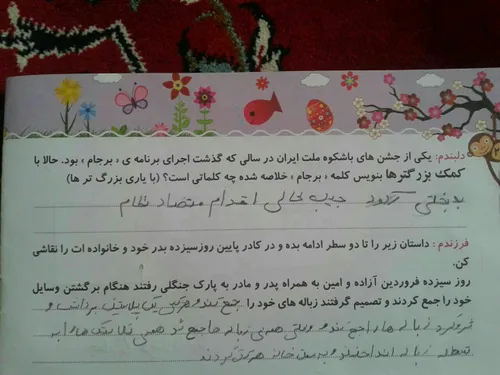 دلبندم: یکی از جشن های باشکوه ملت ایران در سالی که گذشت اجرای برنامه ی « برجام » بود. حالا با
کمک بزرگترها بنویس کلمه « برجام » خلاصه شده چه کلماتی است؟ (با یاری بزرگ تر ها)
بدبختی رکود جیب خالی اقدام متضاد نظام
فرزندم : داستان زیر را تا دو سطر ادامه بده و در کادر پایین روزسیزده بدر خود و خانواده ات را نقاشی
کن.
روز سیزده فروردین آزاده و امین به همراه پدر و مادر به پارک جنگلی رفتند هنگام برگشتن وسایل
خود را جمع کردند و تصمیم گرفتند زباله های خود را جمع کنند و هرکی یک پلاستیک برداشت و
زباله ها را جمع کردند و وقتی همه ی زباله ها جمع شد همه ی پلاستیک ها را به
سطل زباله انداختند و به سمت خانه حرکت کردند